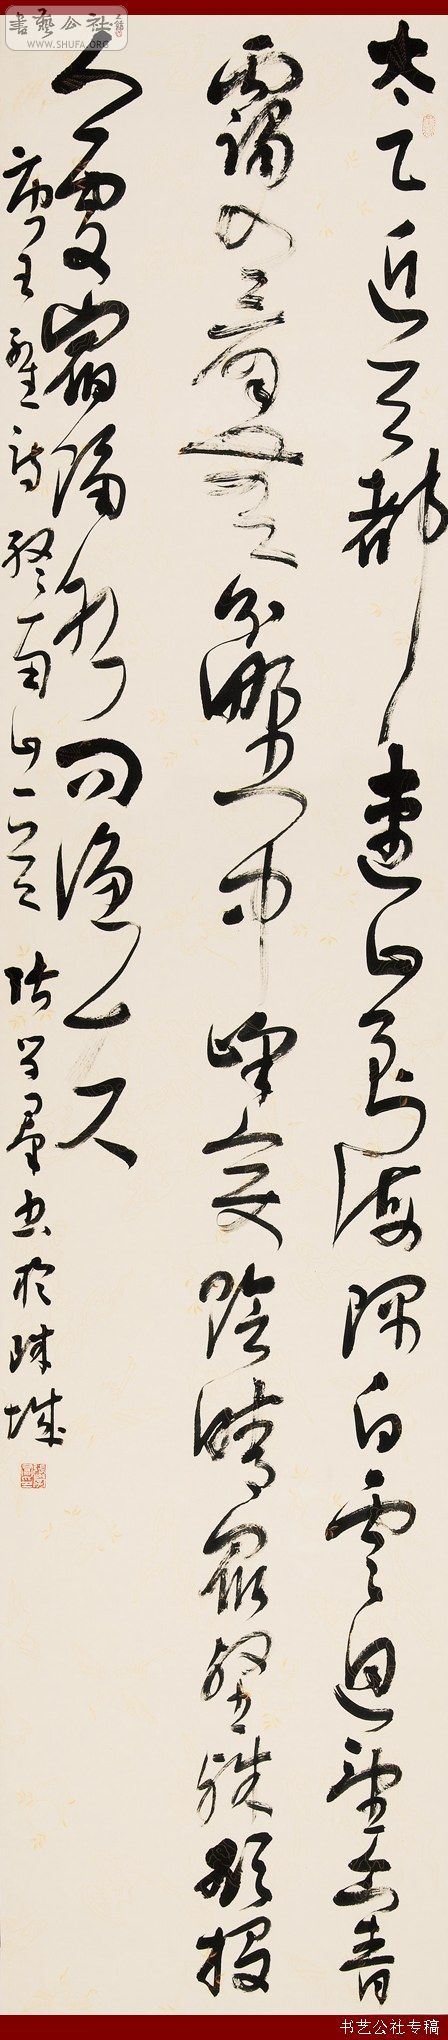 書藝公社
WWW.SHUFA.ORG
太乙近天都連山到海隅白雲迴望合青
靄入看無分野中峰變陰晴眾壑殊欲投
人處宿隔水問樵夫
唐王維詩終南山一首 張學群書於珠城
书艺公社专稿